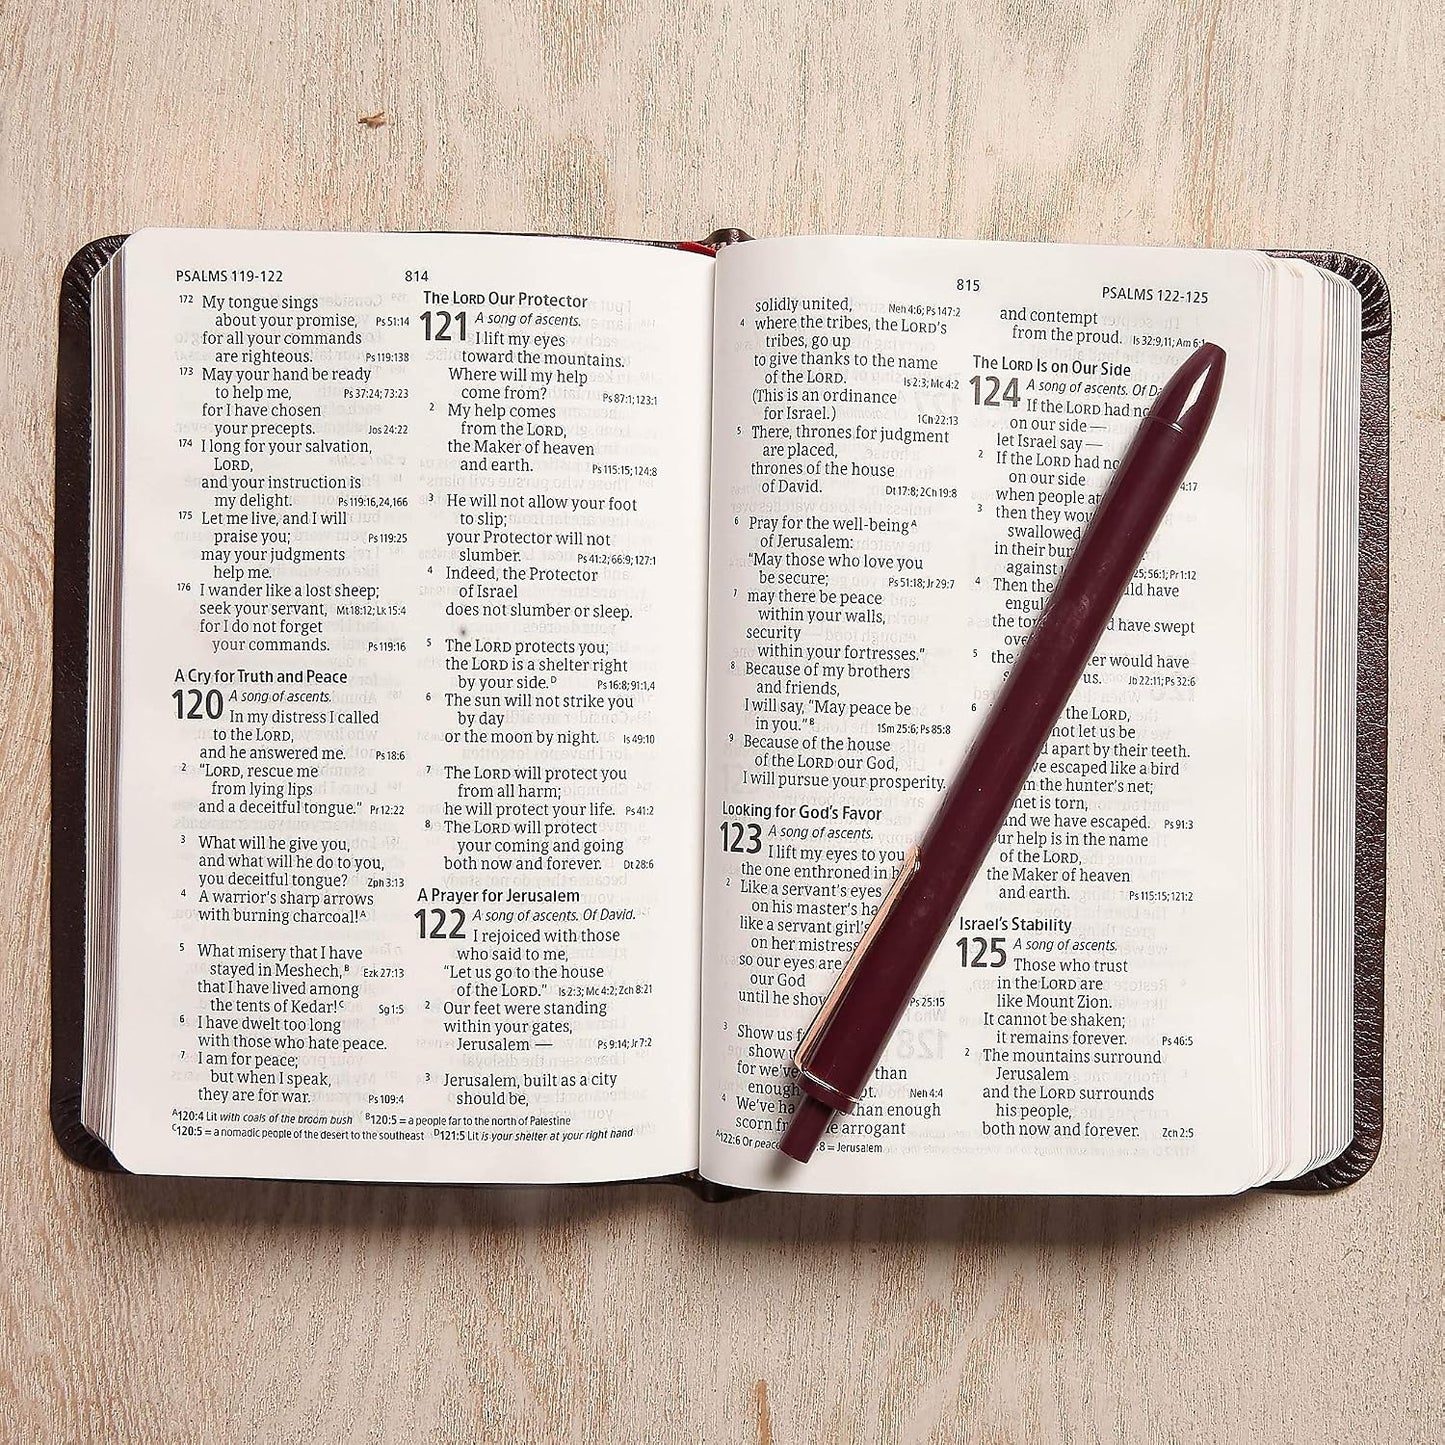 PSALMS 119-122
814
172 My tongue sings
about your promise, Ps 51:14
for all your commands
are righteous. Ps 119:138
173 May your hand be ready
to help me, Ps 37:24; 73:23
for I have chosen
your precepts. Jos 24:22
174 I long for your salvation,
LORD,
and your instruction is
my delight. Ps 119:16,24,166
175 Let me live, and I will
praise you; Ps 119:25
may your judgments
help me.
176 I wander like a lost sheep;
seek your servant, Mt 18:12; Lk 15:4
for I do not forget
your commands. Ps 119:16
A Cry for Truth and Peace
120 A song of ascents.
In my distress I called
to the LORD,
and he answered me. Ps 18:6
2 "LORD, rescue me
from lying lips
and a deceitful tongue." Pr 12:22
3 What will he give you,
and what will he do to you,
you deceitful tongue? Zph 3:13
4 A warrior's sharp arrows
with burning charcoal!A
5 What misery that I have
stayed in Meshech,B Ezk 27:13
that I have lived among
the tents of Kedar!C Sg 1:5
6 I have dwelt too long
with those who hate peace.
7 I am for peace;
but when I speak,
they are for war. Ps 109:4
The LORD Our Protector
121 A song of ascents.
I lift my eyes
toward the mountains.
Where will my help
come from? Ps 87:1; 123:1
2 My help comes
from the LORD,
the Maker of heaven
and earth. Ps 115:15; 124:8
3 He will not allow your foot
to slip;
your Protector will not
slumber. Ps 41:2; 66:9; 127:1
4 Indeed, the Protector
of Israel
does not slumber or sleep.
5 The LORD protects you;
the LORD is a shelter right
by your side.D Ps 16:8; 91:1,4
6 The sun will not strike you
by day
or the moon by night. Is 49:10
7 The LORD will protect you
from all harm;
he will protect your life. Ps 41:2
8 The LORD will protect
your coming and going
both now and forever. Dt 28:6
A Prayer for Jerusalem
122 A song of ascents. Of David.
I rejoiced with those
who said to me,
"Let us go to the house
of the LORD." Is 2:3; Mc 4:2; Zch 8:21
2 Our feet were standing
within your gates,
Jerusalem — Ps 9:14; Jr 7:2
3 Jerusalem, built as a city
should be,
A120:4 Lit with coals of the broom bush B120:5 = a people far to the north of Palestine
C120:5 = a nomadic people of the desert to the southeast D121:5 Lit is your shelter at your right hand
815
PSALMS 122-125
solidly united, Neh 4:6; Ps 147:2
4 where the tribes, the LORD's
tribes, go up
to give thanks to the name
of the LORD. Is 2:3; Mc 4:2
(This is an ordinance
for Israel.) 1Ch 22:13
5 There, thrones for judgment
are placed,
thrones of the house
of David. Dt 17:8; 2Ch 19:8
6 Pray for the well-beingA
of Jerusalem:
"May those who love you
be secure; Ps 51:18; Jr 29:7
7 may there be peace
within your walls,
security
within your fortresses."
8 Because of my brothers
and friends,
I will say, "May peace be
in you."B 1Sm 25:6; Ps 85:8
9 Because of the house
of the LORD our God,
I will pursue your prosperity.
Looking for God's Favor
123 A song of ascents.
I lift my eyes to you
the one enthroned in
2 Like a servant's eyes
on his master's
like a servant girl's
on her mistress
so our eyes are
our God
until he Ps 25:15
3 Show us
for we've than
enough Neh 4:4
4 We've than enough
scorn arrogant
and contempt
from the proud. Is 32:9,11; Am 6:1
The LORD Is on Our Side
124 A song of ascents. Of
If the LORD had
on our side —
let Israel say —
2 If the LORD had
on our side 4:17
when people
3 then they
swallowed
in their
against 56:1; Pr 1:12
4 Then the have
the have swept
5 the would have
us. Jb 22:11; Ps 32:6
6 the LORD,
not let us be
apart by their teeth.
escaped like a bird
the hunter's net;
net is torn,
and we have escaped. Ps 91:3
help is in the name
of the LORD,
the Maker of heaven
and earth. Ps 115:15; 121:2
Israel's Stability
125 A song of ascents.
Those who trust
in the LORD are
like Mount Zion.
It cannot be shaken;
it remains forever. Ps 46:5
2 The mountains surround
Jerusalem
and the LORD surrounds
his people,
both now and forever. Zch 2:5
A122:6 Or = Jerusalem